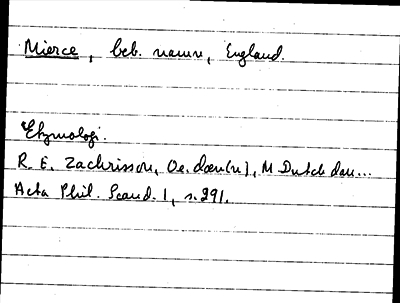 Mierce, beb. namn, England.
Etymologi.
R. E. Zachrisson, Oe. dœn(n), M Dutch dan...
Acta Phil. Scand. 1, s. 291.